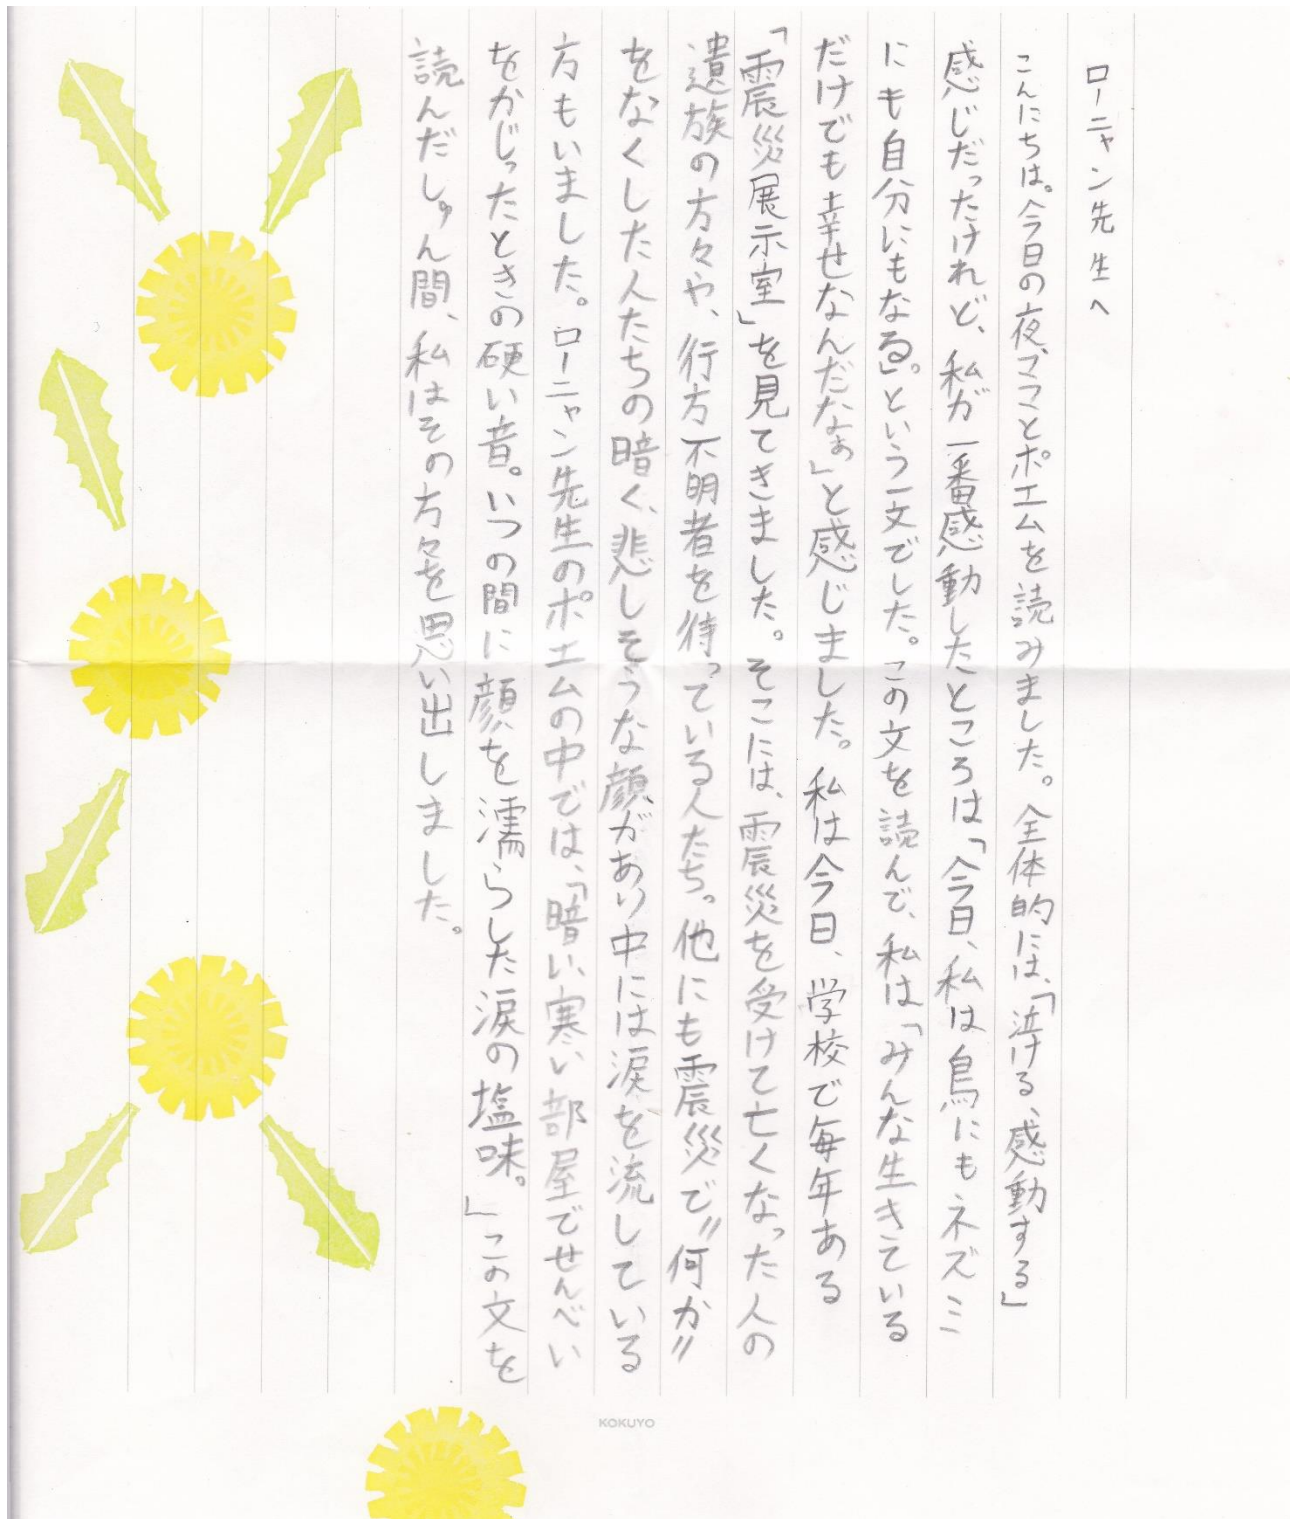 ローニャン先生へ
こんにちは。今日の夜、ママとポエムを読みました。全体的には、「泣ける、感動する」
感じだったけれど、私が一番感動したところは「今日、私は鳥にもネズミ
にも自分にもなる」。という一文でした。この文を読んで、私は「みんな生きている
だけでも幸せなんだなぁ」と感じました。私は今日、学校で毎年ある
「震災展示室」を見てきました。そこには、震災を受けて亡くなった人の
遺族の方々や、行方不明者を待っている人たち。他にも震災で〃何か〃
をなくした人たちの暗く、悲しそうな顔があり中には涙を流している
方もいました。ローニャン先生のポエムの中では、「暗い、寒い部屋でせんべい
をかじったときの硬い音。いつの間に顔を濡らした涙の塩味。」この文を
読んだしゅん間、私はその方々を思い出しました。
KOKUYO